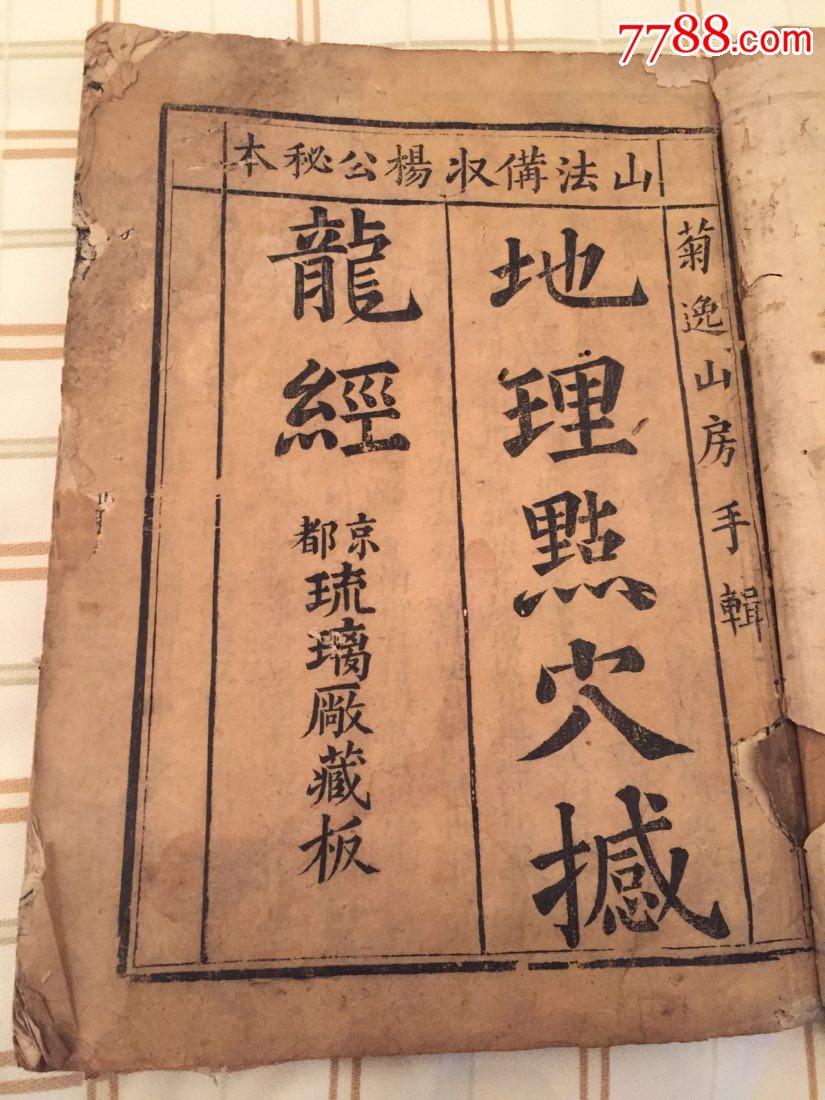 7788.com
山法備収楊公秘本
菊逸山房手輯
地理點穴撼
龍經
京都
琉璃厰藏板